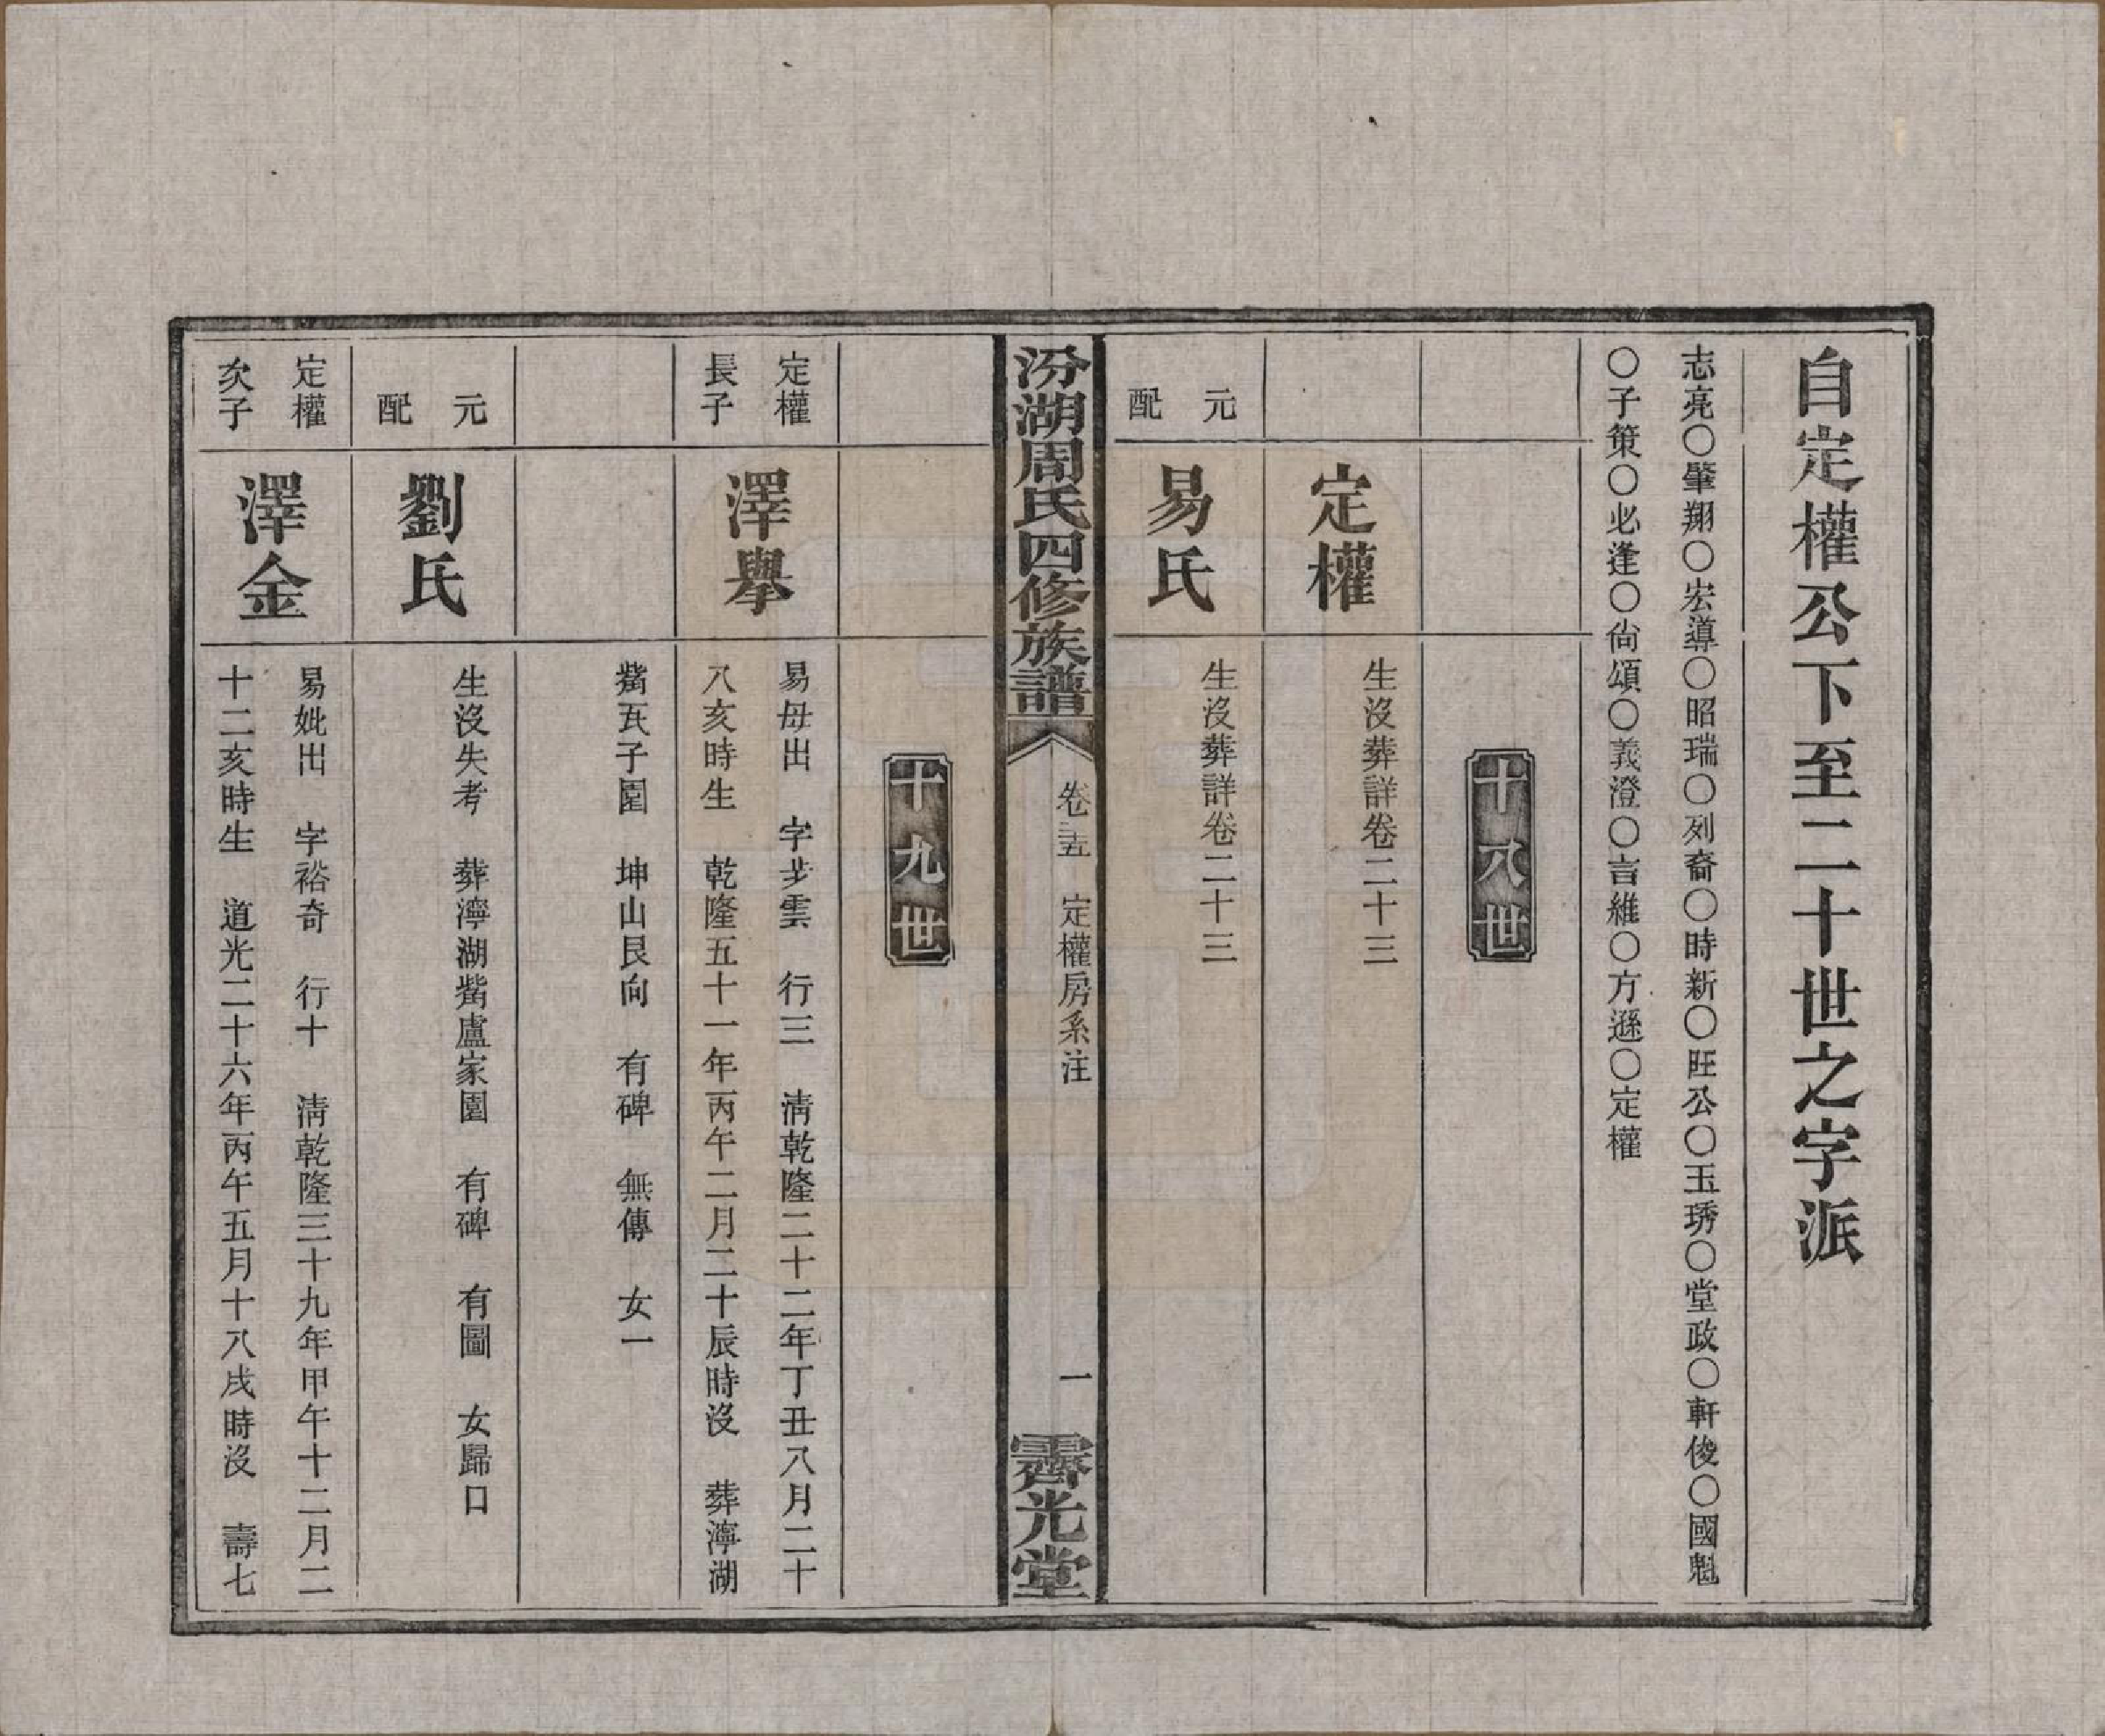 自定權公下至二十世之字派
志亮〇肇翔〇宏導〇昭瑞〇列裔〇時新〇旺公〇玉琇〇堂政〇軒俊〇國魁
〇子策〇必逢〇尙頌〇義澄〇言維〇方遜〇定權
十八世
定權
生沒葬詳卷二十三
元配
易氏
生沒葬詳卷二十三
汾湖周氏四修族譜
卷三五 定權房系注
一
霽光堂
十九世
定權
長子
澤擧
易母出 字步雲 行三 淸乾隆二十二年丁丑八月二十
八亥時生 乾隆五十一年丙午二月二十辰時沒 葬濘湖
觜瓦子園 坤山艮向 有碑 無傳 女一
元配
劉氏
生沒失考 葬濘湖觜盧家園 有碑 有圖 女歸口
定權
次子
澤金
易妣出 字裕奇 行十 淸乾隆三十九年甲午十二月二
十二亥時生 道光二十六年丙午五月十八戌時沒 壽七